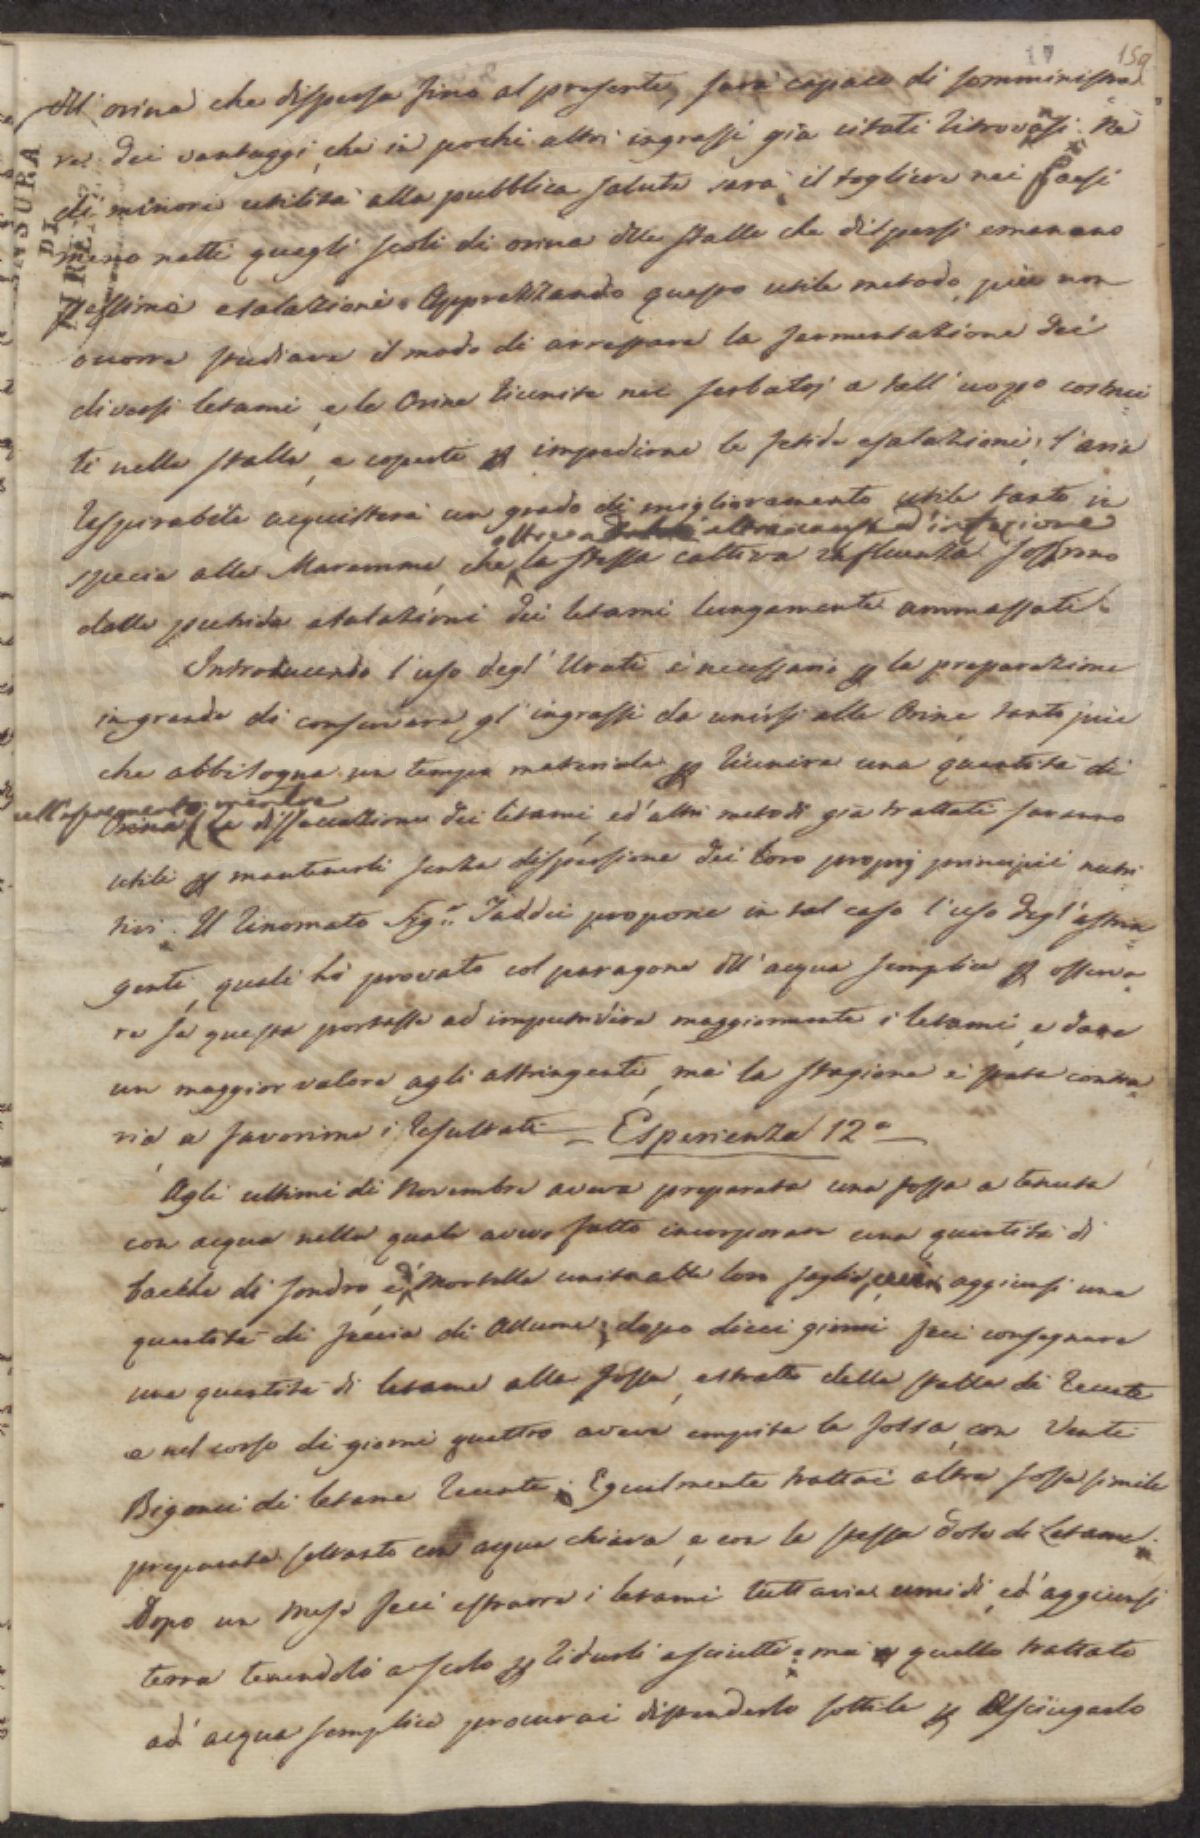 17 150
dell'orina che dispersa fino al presente, sarà capace di somministra=
re dei vantaggi, che in pochi altri ingrassi già citati ritrovasi. Nè
di minore utilità alla pubblica salute sarà il togliere nei Paesi
meno netti quegli scoli di orina delle stalle che dispersi emanano
pessime esalazioni. Apprezzando questo utile metodo, più non
occorre studiare il modo di arrestare la fermentazione dei
diversi letami, e le Orine riunite nei serbatoj a tall'uopo costrui=
ti nelle stalle, e coperti per impedirne le fetide esalazioni, l'aria
respirabile acquisterà un grado di miglioramento utile tanto in
oltre a altre cause d'infezione
specie alle Maremme, che la stessa cattiva influenza soffrono
dalle putride esalazioni dei letami lungamente ammassati.
Introducendo l'uso degl'Urati è necessario per la preparazione
in grande di conservare gl'ingrassi da unirsi alle Orine, tanto più
che abbisogna un tempo materiale per riunire una quantità di
mentre
Orina, la disseccazione dei letami, ed'altri metodi già trattati saranno
utili per mantenerli senza dispersione dei loro proprj principii nutri
tivi. Il rinomato Sigr. Taddei propone in tal caso l'uso degl'astrin=
genti, quali hò provato col paragone dell'acqua semplice per osserva=
re se questa portasse ad imputridire maggiormente i letami, e dare
un maggior valore agli astringenti, mà la stagione è stata contra=
ria a favorirne i resultati — Esperienza 12a —
Agli ultimi di Novembre aveva preparata una fossa a tenuta
con acqua nella quale avevo fatto incorporare una quantità di
bacche di sondro e di Mortella unite alle loro foglie, aggiunsi una
quantità di feccia di Allume, dopo dieci giorni feci consegnare
una quantità di letame alla fossa, estratto dalla stalla di recente
e nel corso di giorni quattro aveva empita la fossa, con Venti
Bigonci di letame recente. Egualmente trattai altra fossa simile
preparata soltanto con acqua chiara, e con la stessa dose di Letame.
Dopo un Mese feci estrarre i letami tuttavia umidi, ed'aggiunsi
terra tenendoli a scolo per ridurli asciutti: mà quello trattato
ad'acqua semplice procurai distenderlo sottile per Asciugarlo